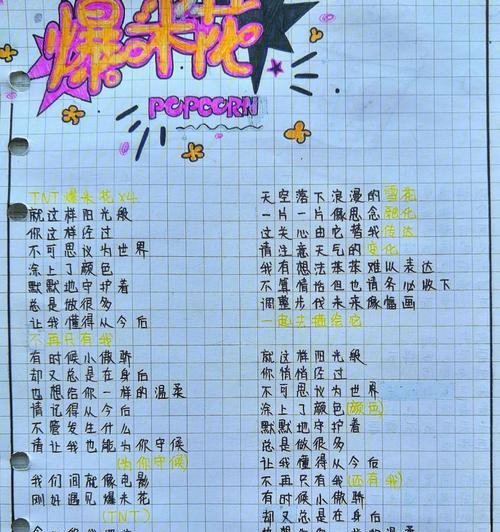 爆米花
POPCORN
TNT爆米花x4
就这样阳光般
你这样经过
不可思议为世界
涂上了颜色
默默地守护着
总是做很多
让我懂得从今后
不再只有我
有时候小傲骄
却又总是在身后
也想给你一样的温柔
请记得从今后
不管发生什么
请让我也能为你守候
(为你守候)
我们间就像电影
刚好遇见爆米花
(TNT)
天空落下浪漫的雪花
一片一片像思念融化
这关心由它替我传达
请注意天气的变化
我有想法笨笨难以表达
不算情话但也请务必收下
调整步伐未来像幅画
一起去描绘它
就这样阳光般
你悄悄经过
不可思议为世界
涂上了颜色(颜色)
默默地守护着
总是做很多
让我懂得从今后
不再只有我(还有我)
有时候小傲骄
却又总是在身后